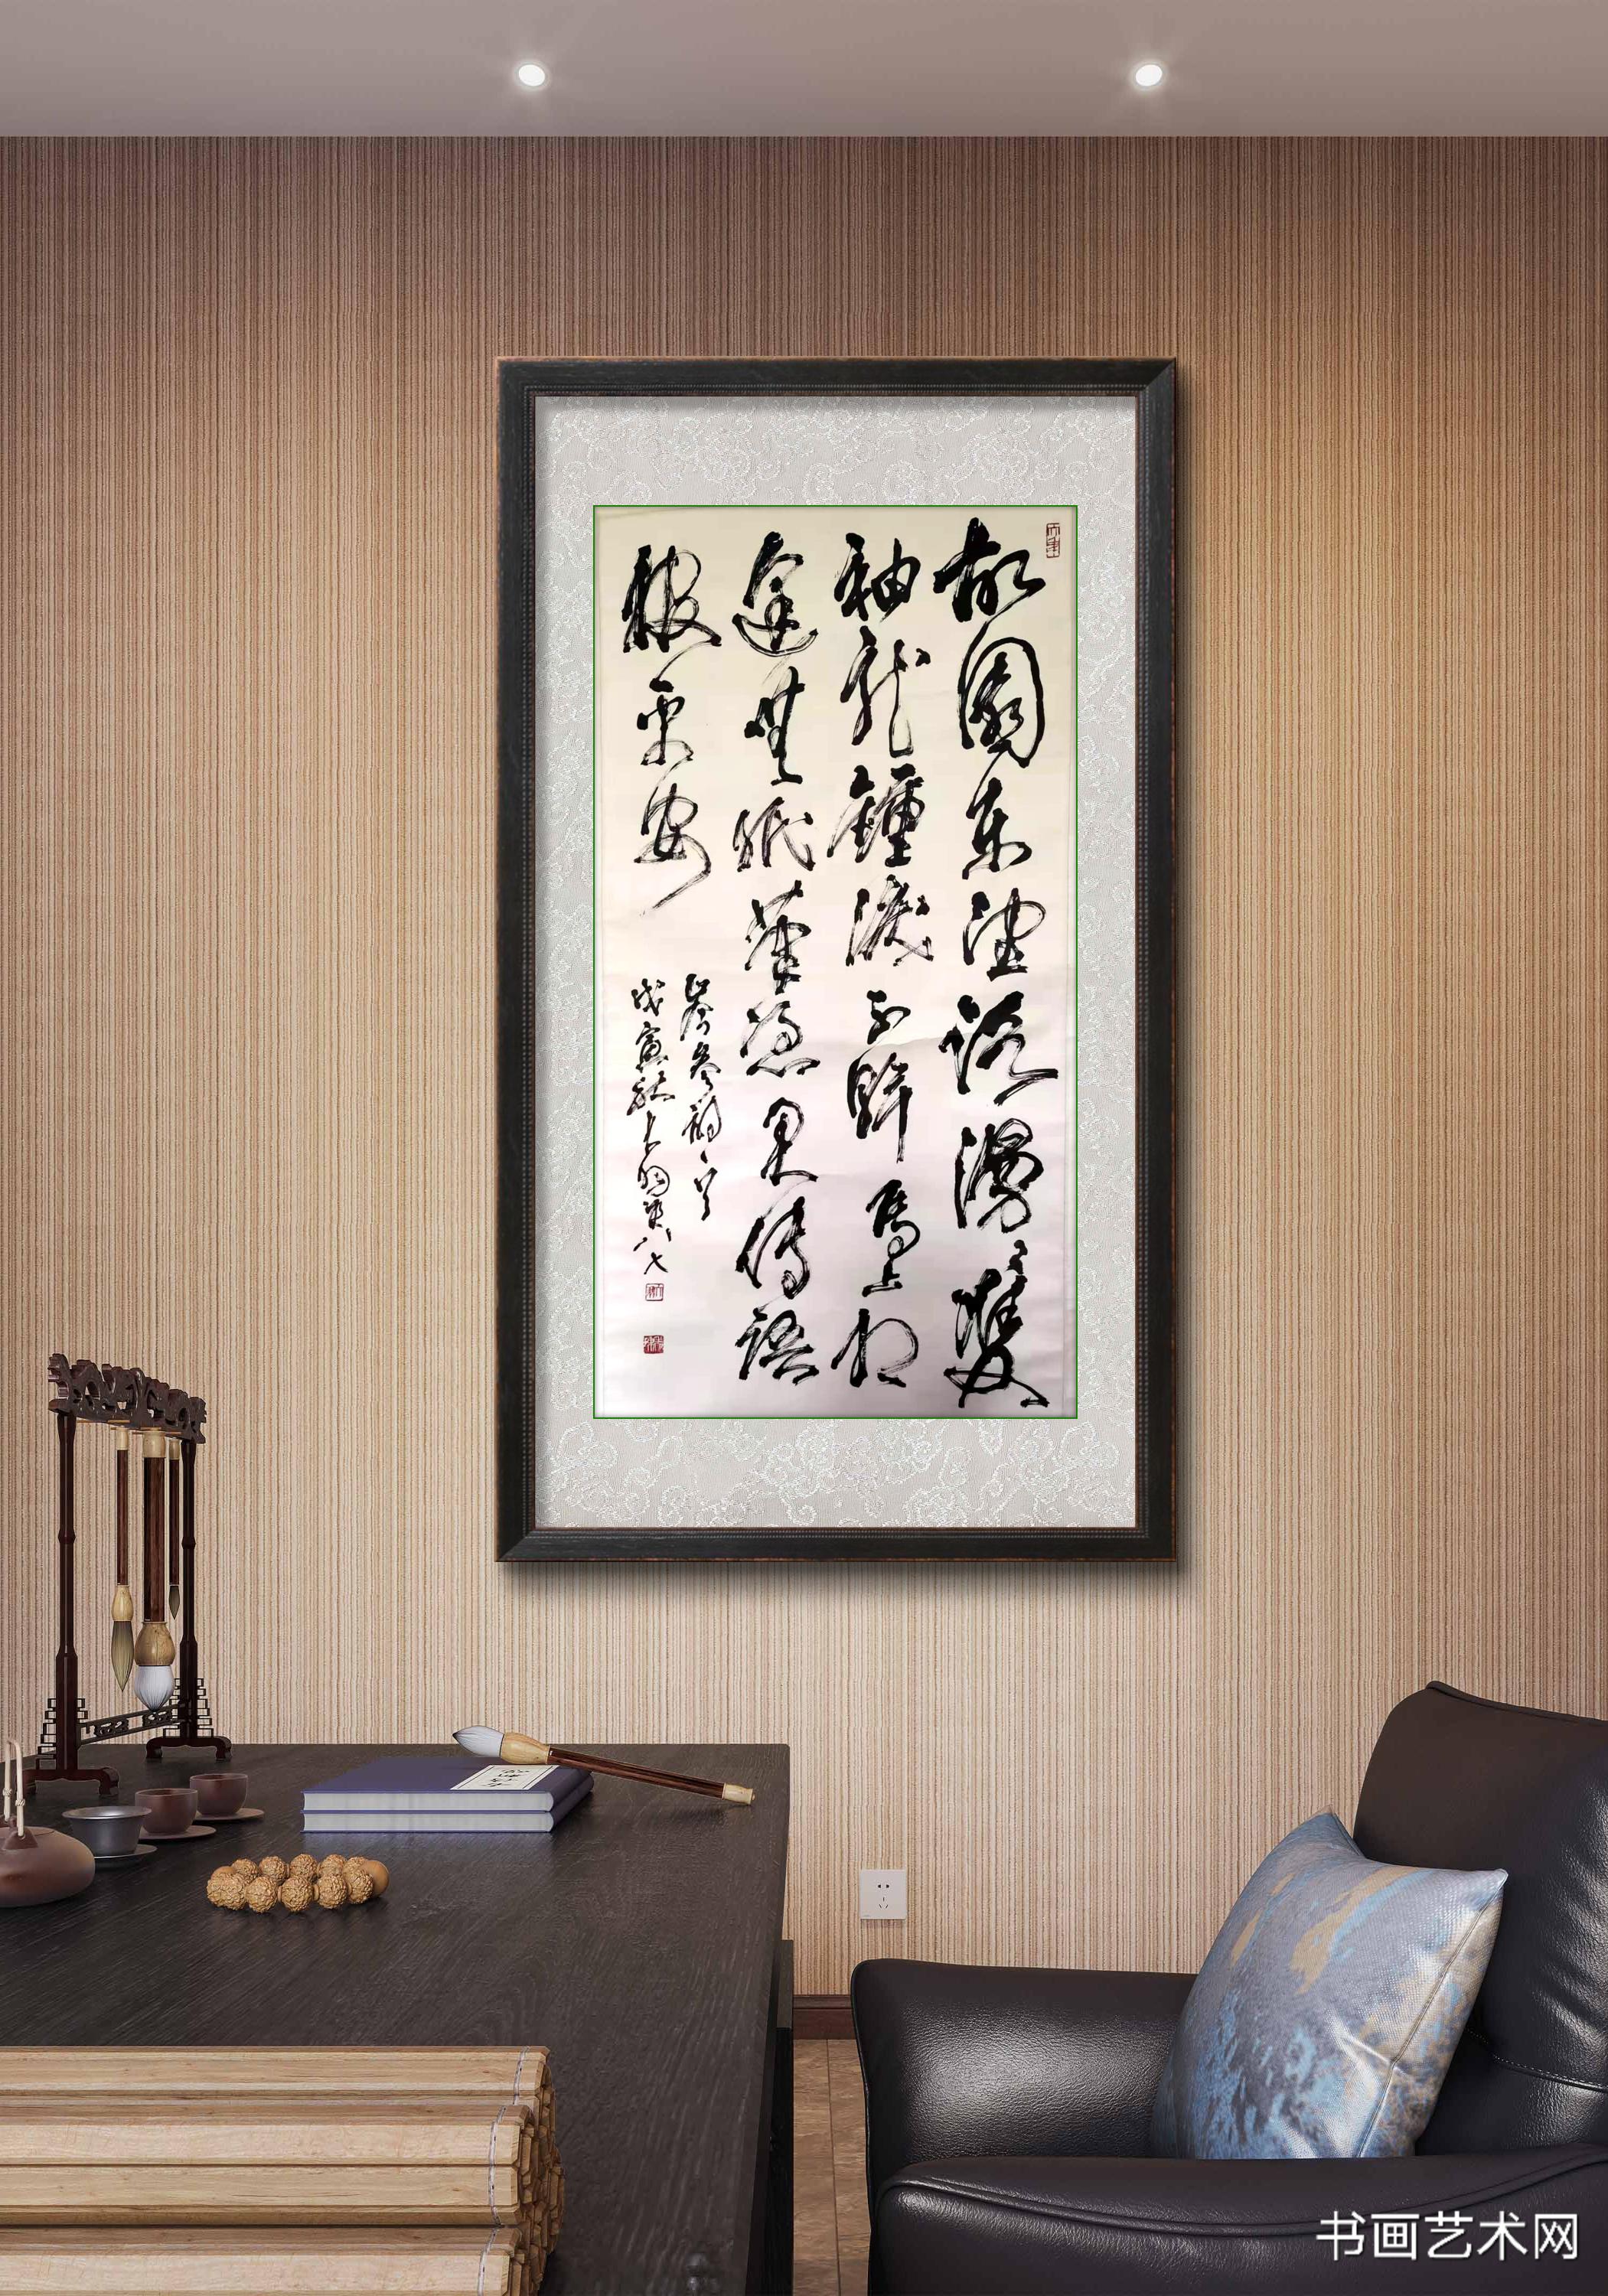 故園東望路漫〻雙
袖龍鍾淚不乾馬上相
逢無紙筆憑君傳語
報平安
岑參詩一首
戊寅秋
八七
书画艺术网